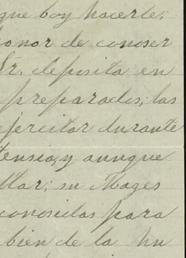 que boy hacerle;
onor de conoser
Sr. deposita en
preparados, las
ejercitar durante
tensia, y aunque
llar; su Mages
conosidas para
bien de la hu